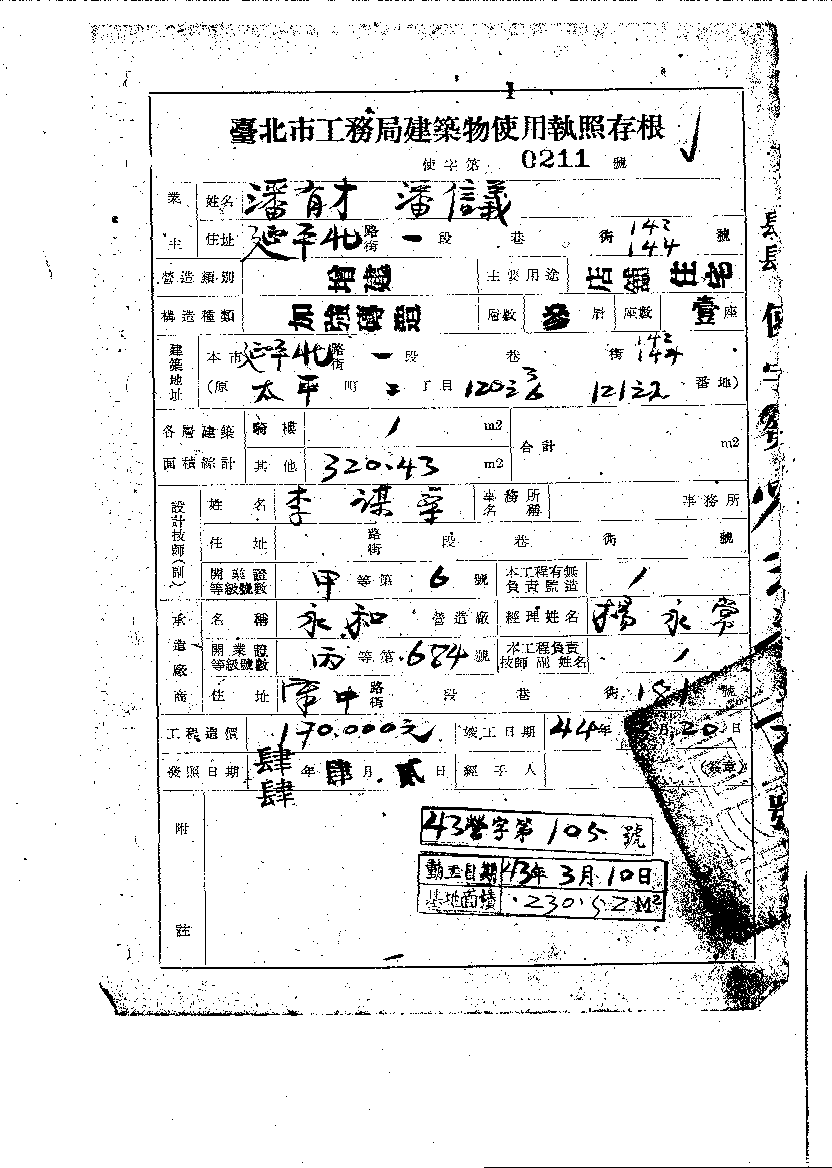 臺北市工務局建築物使用執照存根
使字第 0211 號
業主 姓名 潘有才 潘信義
住址 延平北路街 一段 巷 街 142 144 號
營造類別 增建 主要用途 店舖住宅
構造種類 加強磚造 層數 參層 座數 壹座
建築地址 本市 延平北路街 一段 巷 街 142 144
(原 太平町 二丁目 120之3 121之2 番地)
各層建築面積綜計 騎樓 / m2 合計 m2
其他 320.43 m2
設計技師(副) 姓名 李謀 事務所名稱 事務所
住址 路街 段 巷 街 號
開業證等級號數 甲等第 6 號 本工程有無負責監造 /
承造廠商 名稱 永和 營造廠 經理姓名 楊永常
開業證等級號數 丙等第 684 號 本工程負責技師 副 姓名 /
住址 路街 段 巷 街 號
工程造價 170.000元 竣工日期 44年 月 20日
發照日期 肆肆年 肆月 貳日 經手人 (簽章)
附註
43營字第 105 號
動工日期 43年3月10日
基地面積 230.52 M2